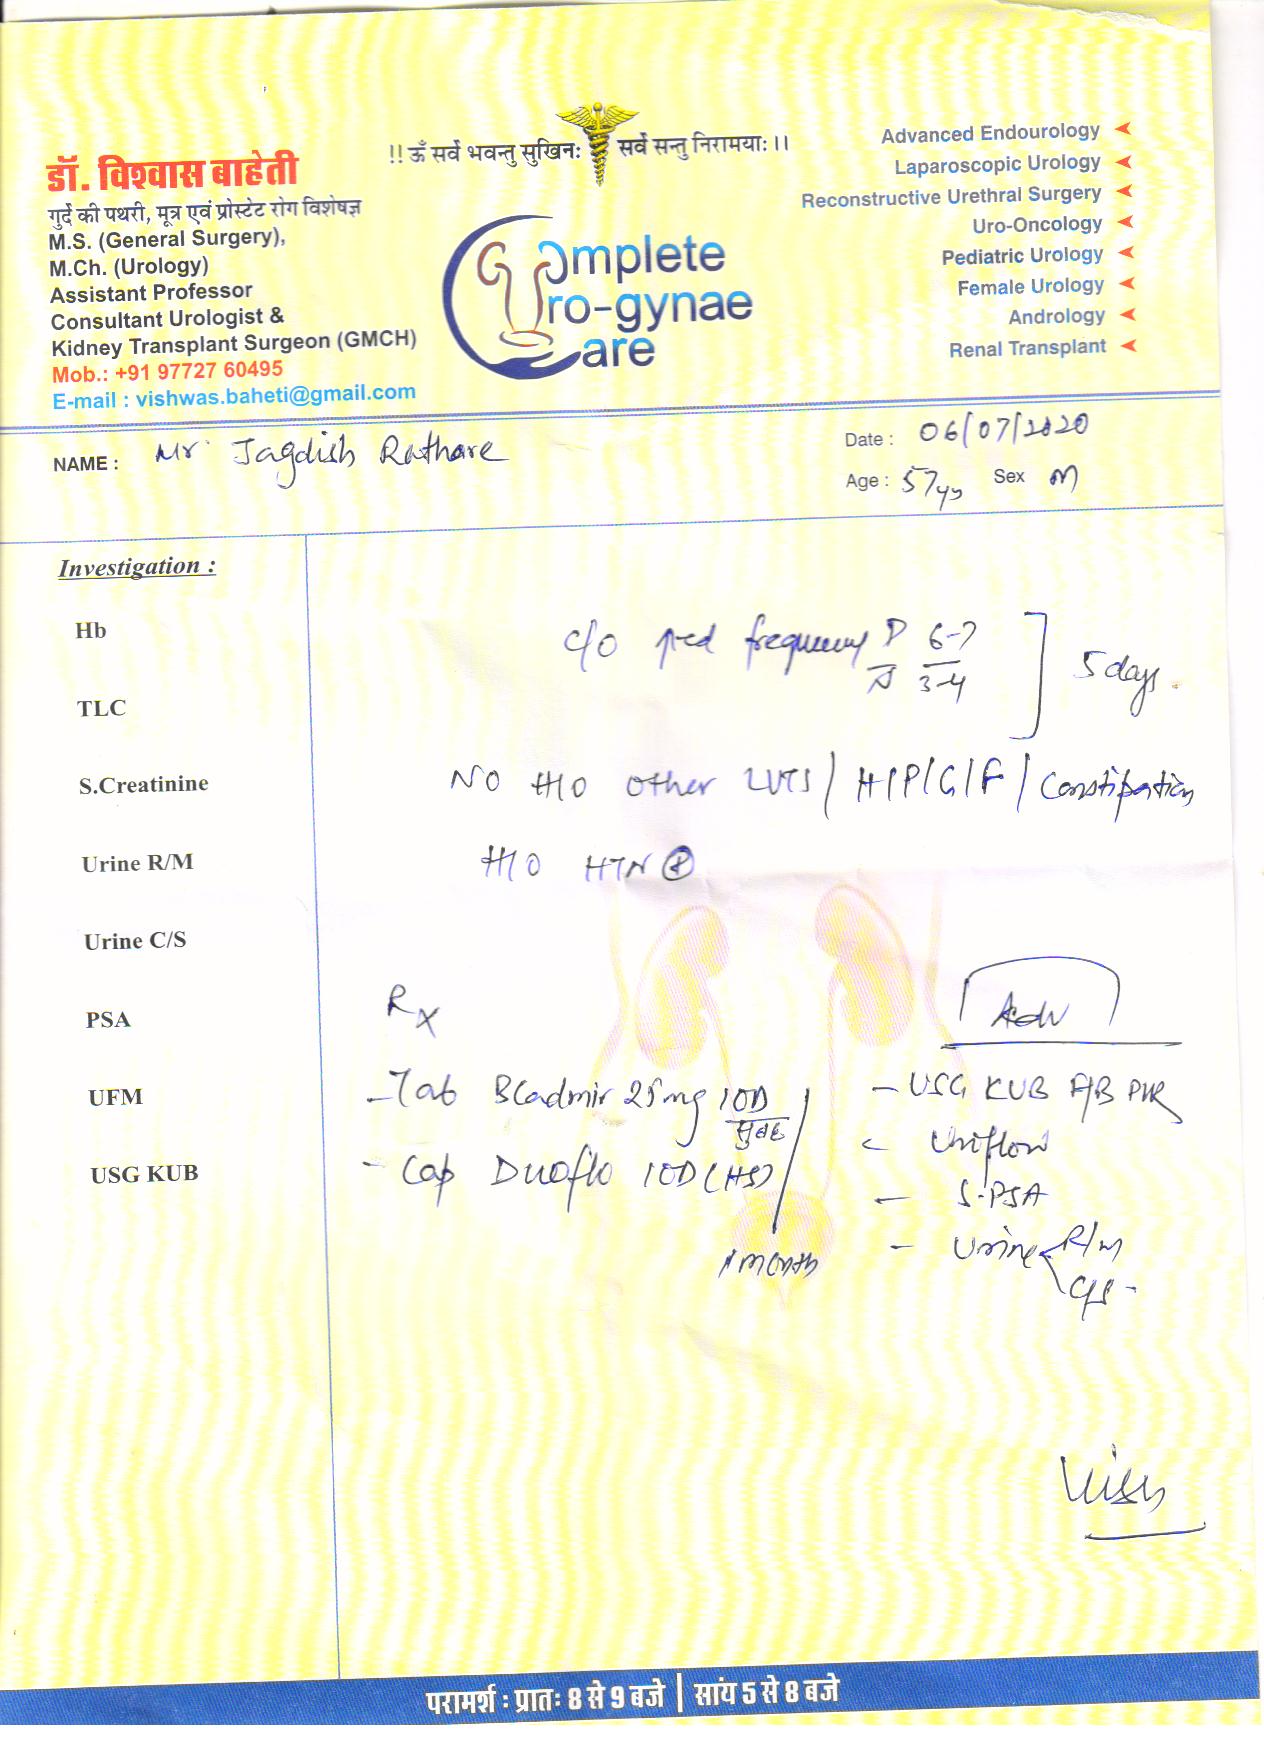 !! ॐ सर्वे भवन्तु सुखिनः सर्वे सन्तु निरामयाः ।।
डॉ. विश्वास बाहेती
गुर्दे की पथरी, मूत्र एवं प्रोस्टेट रोग विशेषज्ञ
M.S. (General Surgery),
M.Ch. (Urology)
Assistant Professor
Consultant Urologist &
Kidney Transplant Surgeon (GMCH)
Mob.: +91 97727 60495
E-mail : vishwas.baheti@gmail.com
Complete
Uro-gynae
Care
Advanced Endourology
Laparoscopic Urology
Reconstructive Urethral Surgery
Uro-Oncology
Pediatric Urology
Female Urology
Andrology
Renal Transplant
NAME : Mr Jagdish Rathore
Date : 06/07/2020
Age : 57yrs Sex M
Investigation :
Hb
TLC
S.Creatinine
Urine R/M
Urine C/S
PSA
UFM
USG KUB
C/O frequency D 6-7
N 3-4
5 days.
NO H/O Other LUTS / H/P/G/F / Constipation
H/O HTN ⊕
Rx
- Tab 25mg 1OD
सुबह
- Cap Duoflo 1OD (HS)
1 month
Adv
- USG KUB PVR
- Uroflow
- S-PSA
- Urine R/M
C/S -
परामर्श : प्रातः 8 से 9 बजे | सांय 5 से 8 बजे